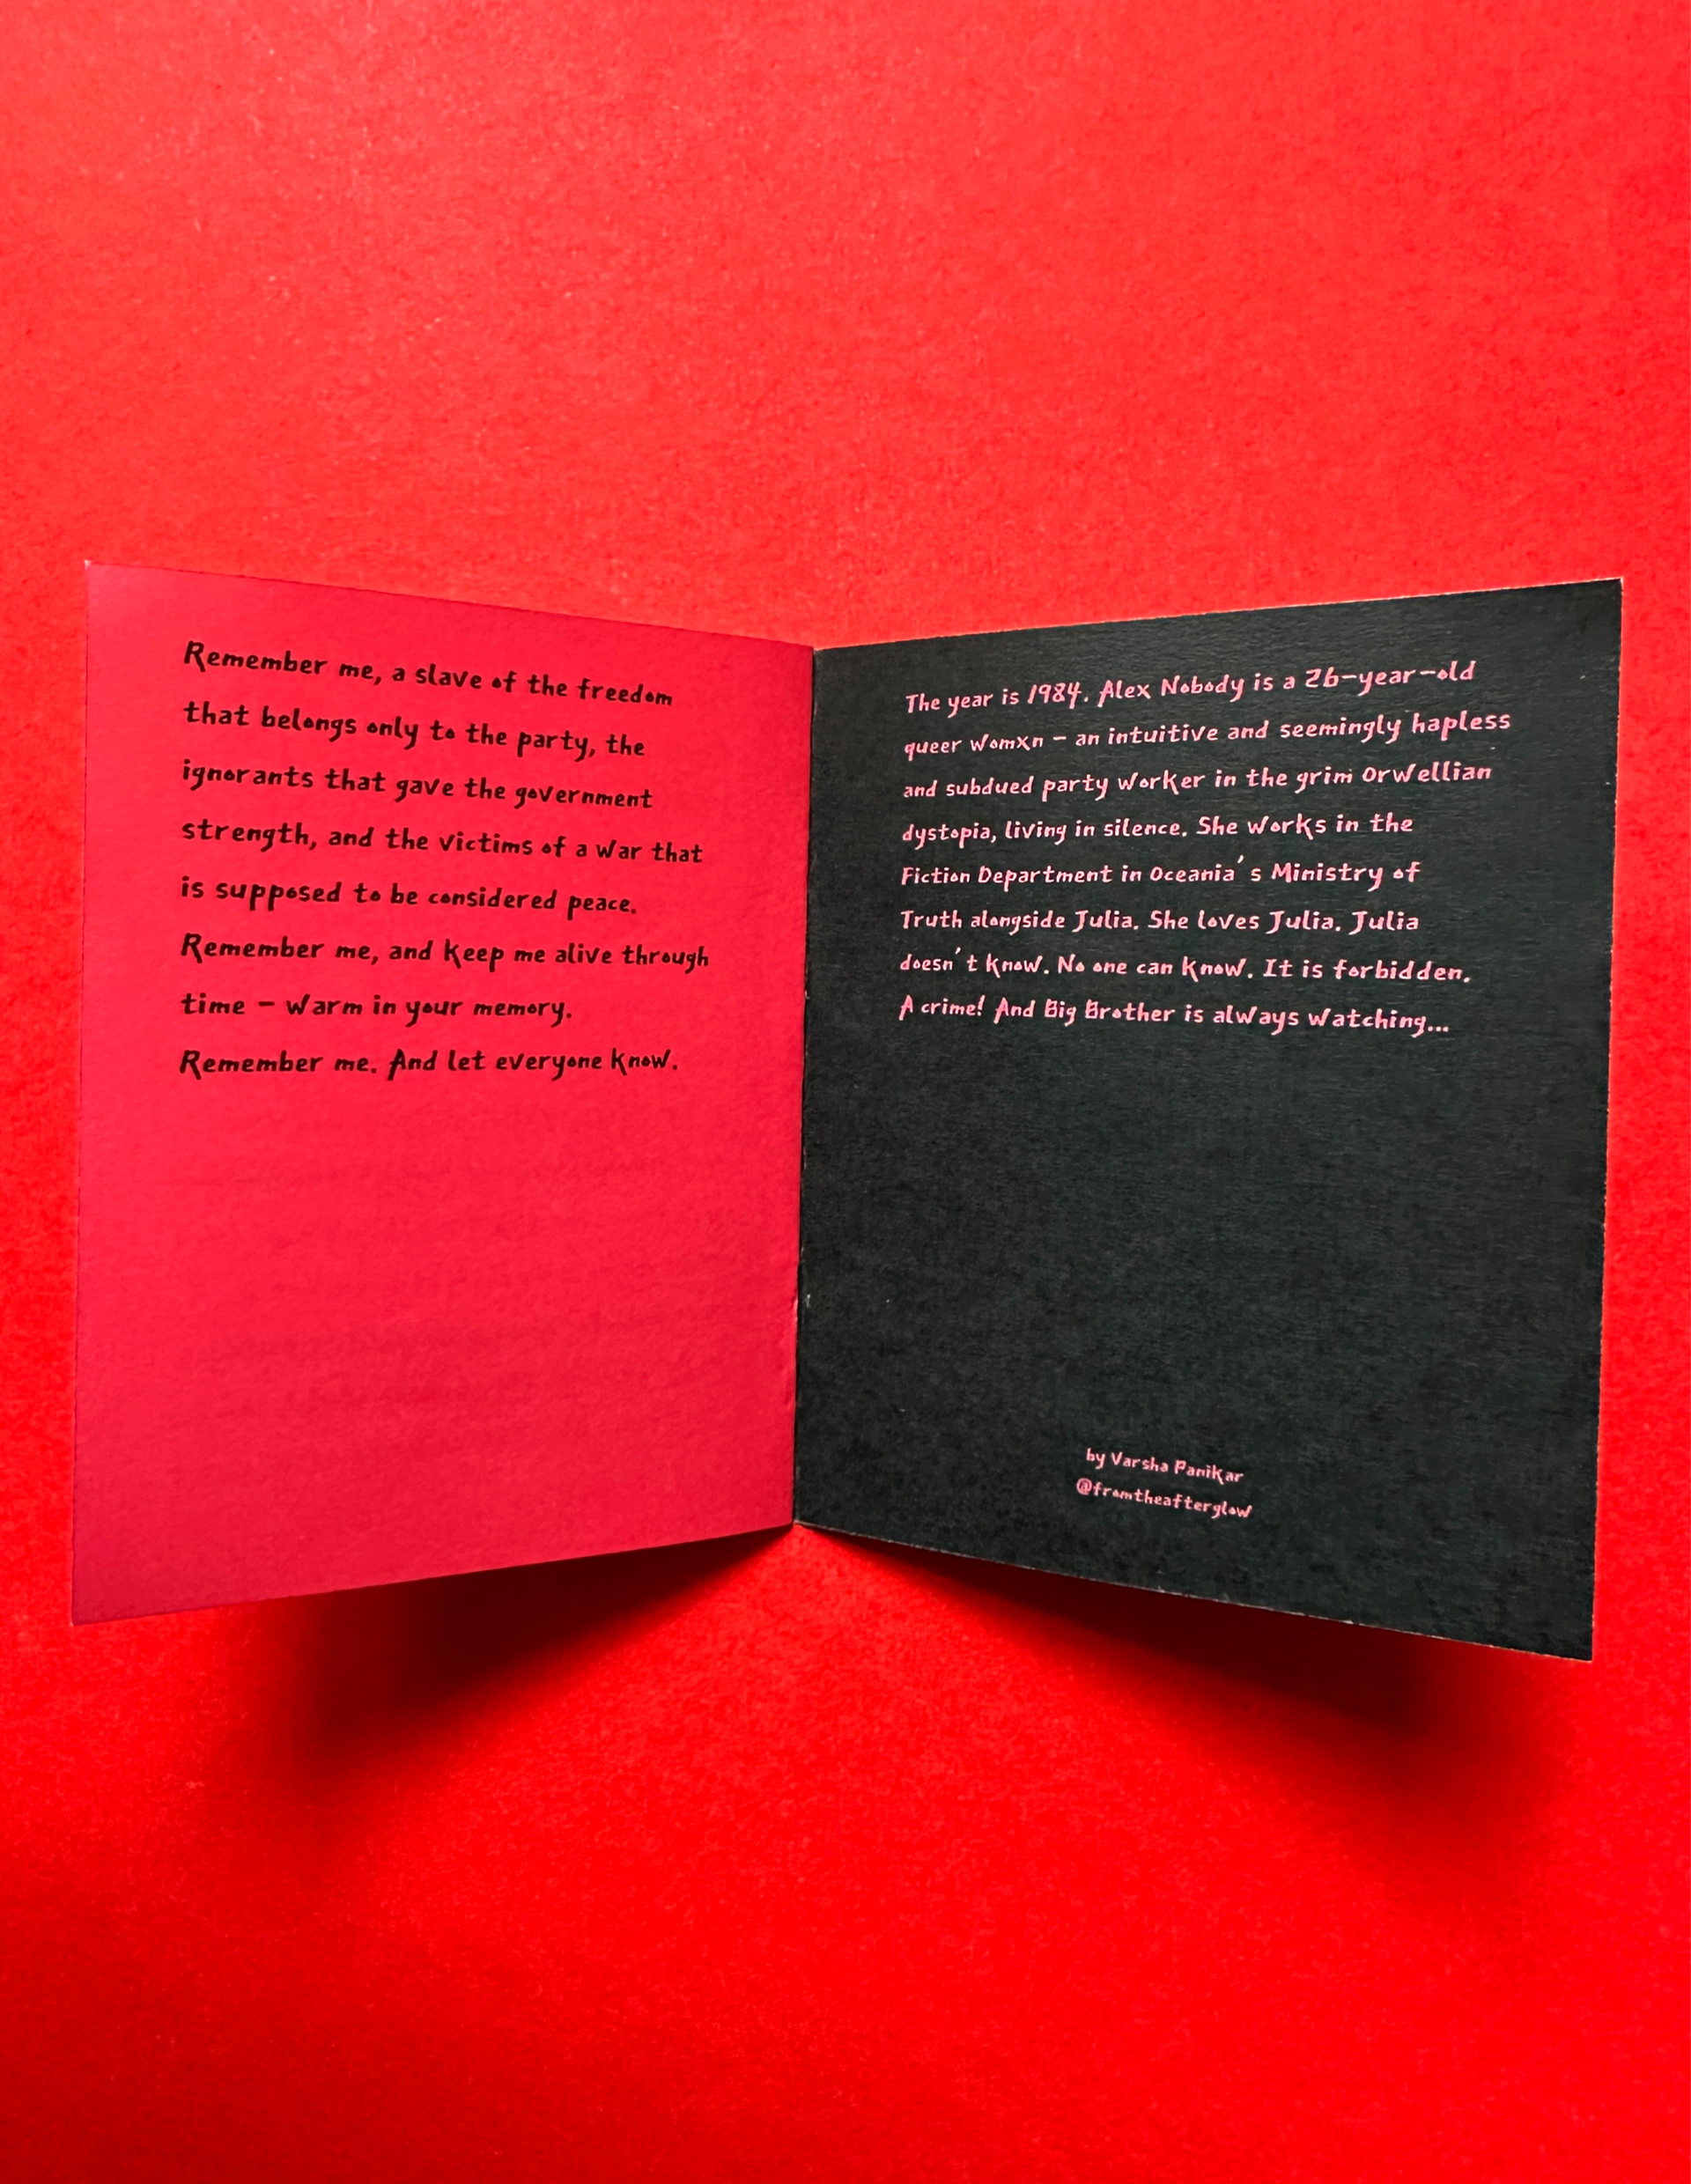 Remember me, a slave of the freedom
that belongs only to the party, the
ignorants that gave the government
strength, and the victims of a war that
is supposed to be considered peace.
Remember me, and keep me alive through
time – warm in your memory.
Remember me. And let everyone know.
The year is 1984. Alex Nobody is a 26-year-old
queer womxn – an intuitive and seemingly hapless
and subdued party worker in the grim Orwellian
dystopia, living in silence. She works in the
Fiction Department in Oceania's Ministry of
Truth alongside Julia. She loves Julia. Julia
doesn't know. No one can know. It is forbidden.
A crime! And Big Brother is always watching...
by Varsha Panikar
@fromtheafterglow